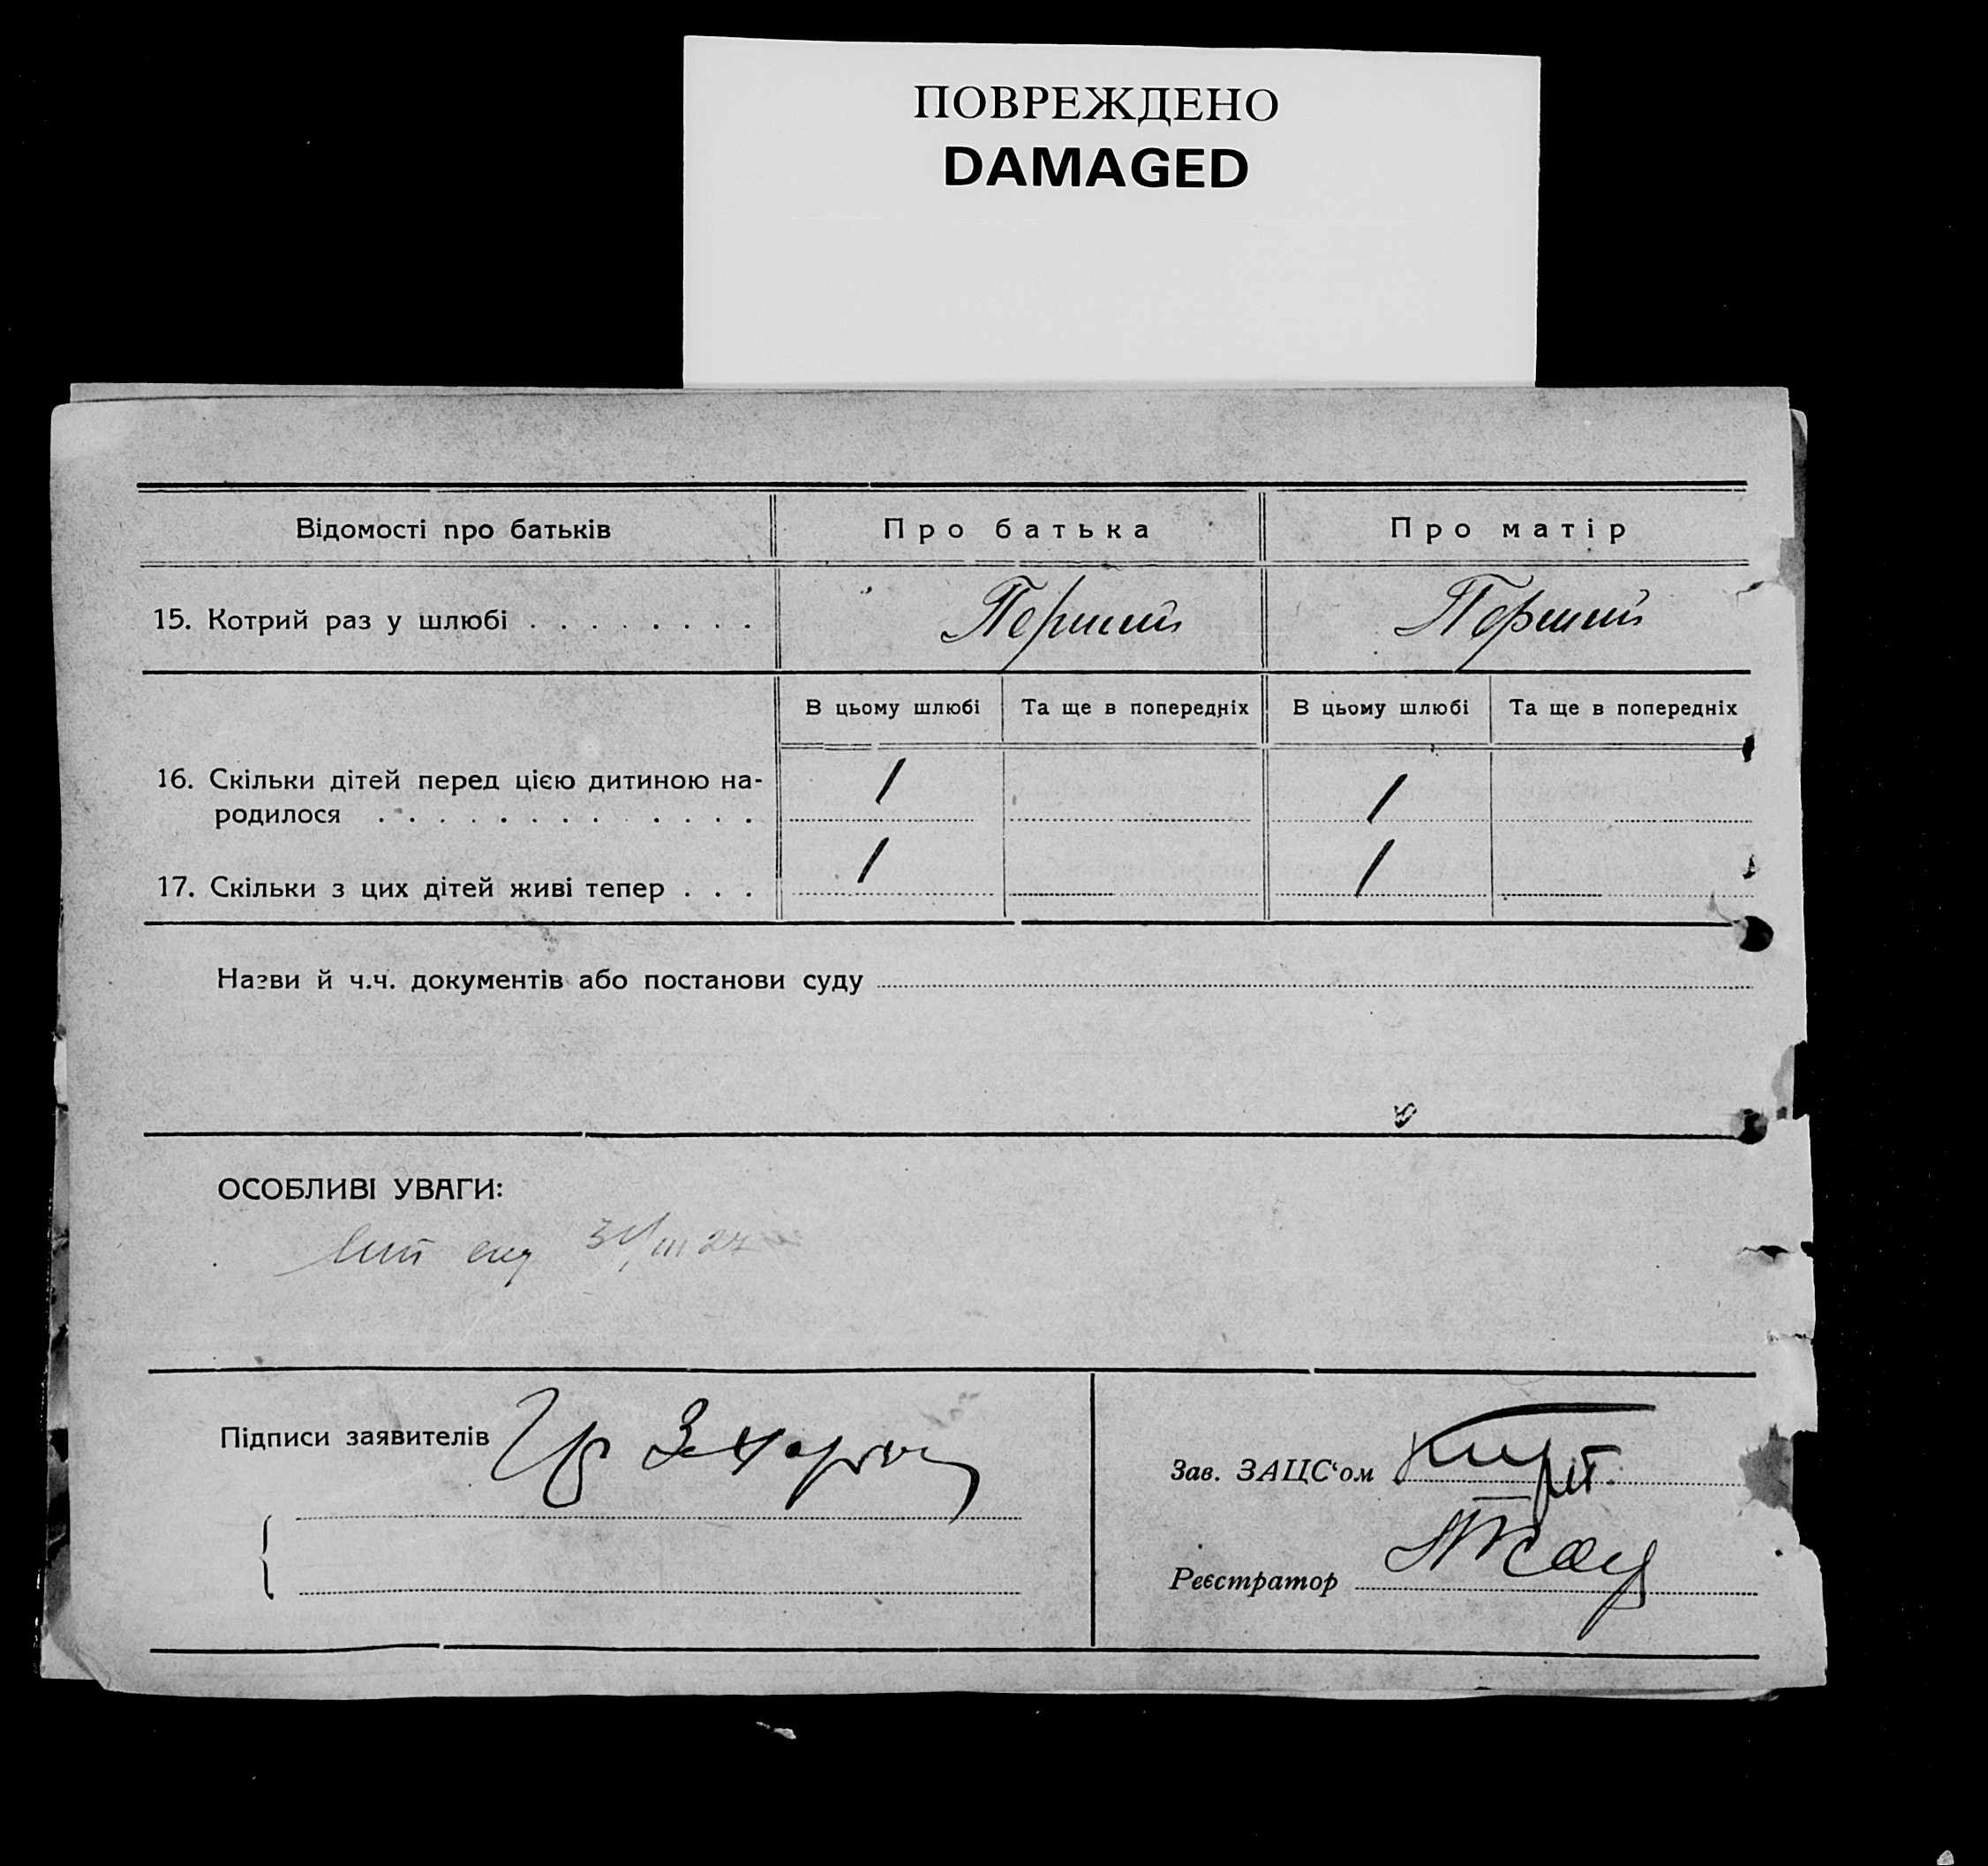 ПОВРЕЖДЕНО
DAMAGED
Відомості про батьків Про батька Про матір
15. Котрий раз у шлюбі . . . . . . . . Перший Перший
В цьому шлюбі Та ще в попередніх В цьому шлюбі Та ще в попередніх
16. Скільки дітей перед цією дитиною на-
родилося . . . . . . . . . . . . 1 1
17. Скільки з цих дітей живі тепер . . . 1 1
Назви й ч.ч. документів або постанови суду
ОСОБЛИВІ УВАГИ:
Підписи заявителів
Зав. ЗАЦС‘ом
Реєстратор